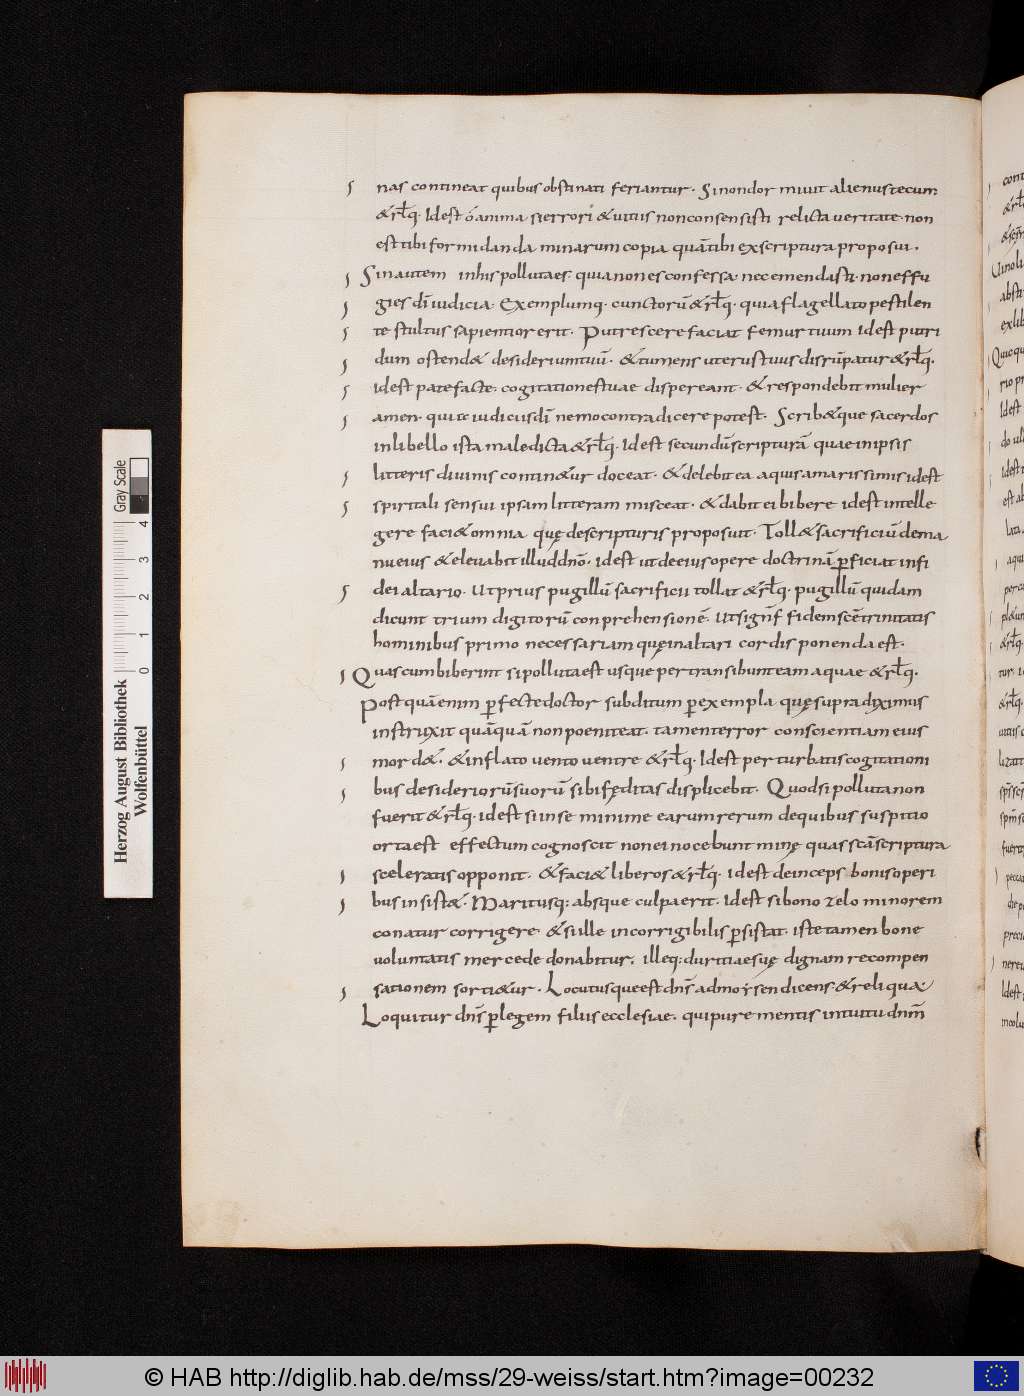 nas contineat quibus obstinati feriantur. Si non dormiuit alienus tecum
&rłq. Idest ó anima si errori & uitiis non consensisti relicta ueritate. non
est tibi formidanda minarum copia quā tibi ex scriptura proposui.
Sin autem in his polluta es. quia non es confessa. nec emendasti. non effu
gies dī iudicia. Exemplumq. cunctorū &rłq. quia flagellato pestilen
te stultus sapientior erit. Putrescere faciat femur tuum Idest putri
dum ostend& desiderium tuū. & tumens uterus tuus disrūpatur &rłq.
Idest patefacte. cogitationes tuae dispereant. & respondebit mulier
amen. quia iudiciis dī nemo contradicere potest. Scrib&que sacerdos
in libello ista maledicta &rłq. Idest secundū scripturā quae in ipsis
litteris diuinis contin&ur doceat. & delebit ea aquis amarissimis idest
spiritali sensui ipsam litteram misceat. & dabit ei bibere idest intelle
gere faci& omnia quę de scripturis proposuit. Toll& sacrificiū de ma
nu eius & eleuabit illud dno. idest ut de eius opere doctrinā pficiat in fi
dei altario. Ut prius pugillū sacrificii tollat &rłq. pugillū quidam
dicunt trium digitorū conprehensionē. ut signf fidem scē trinitatis
hominibus primo necessariam quę in altari cordis ponenda est.
Quas cum biberint si polluta est usque pertransibunt eam aquae &rłq.
Post quā enim pfecte doctor subditum p exempla quę supra diximus
instruxit quāquā non poeniteat. tamen terror conscientiam eius
mord&. & inflato uento uentre &rłq. Idest perturbatis cogitationi
bus desideriorū suorū sibi fęditas displicebit. Quod si polluta non
fuerit &rłq. idest si in se minime earum rerum de quibus suspitio
orta est effectum cognoscit non ei nocebunt minę quas scā scriptura
sceleratis opponit. & faci& liberos &rłq. Idest deinceps bonis operi
bus insist&. Maritusq: absque culpa erit. Idest si bono zelo minorem
conatur corrigere. & si ille incorrigibilis psistat. iste tamen bone
uoluntatis mercede donabitur. illeq: duritiae suę dignam recompen
sationem sorti&ur. Locutusque est dns ad moysen dicens. & reliqua
Loquitur dns p legem filiis ecclesiae. qui pure mentis intuitu dnm
Gray Scale
4
3
2
1
0
Herzog August Bibliothek
Wolfenbüttel
© HAB http://diglib.hab.de/mss/29-weiss/start.htm?image=00232